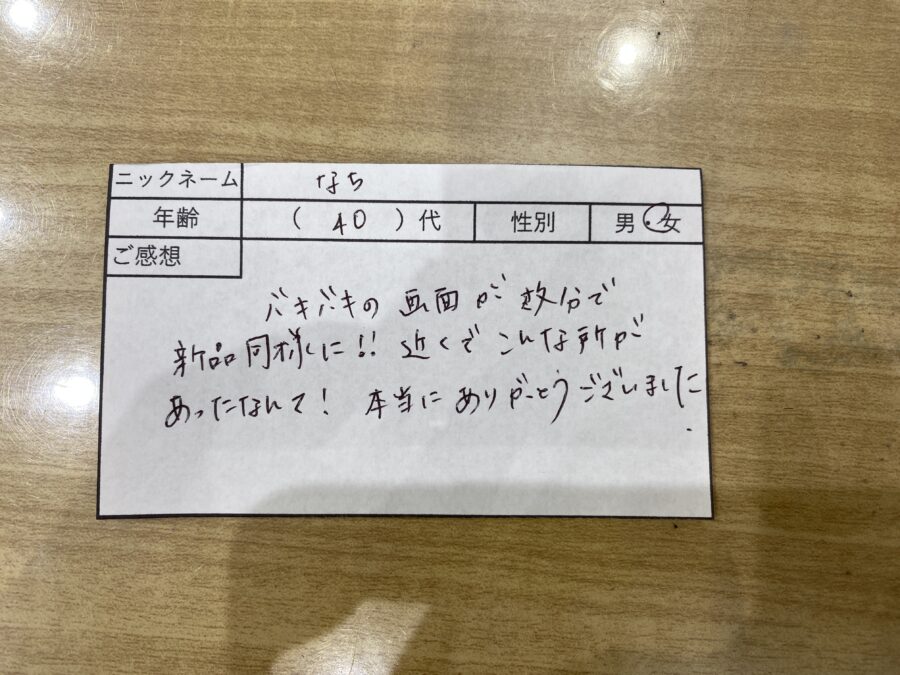 ニックネーム なち
年齢 ( 40 ) 代 性別 男・女
ご感想
バキバキの画面が数分で
新品同様に!! 近くでこんな所が
あったなんて! 本当にありがとうございました.